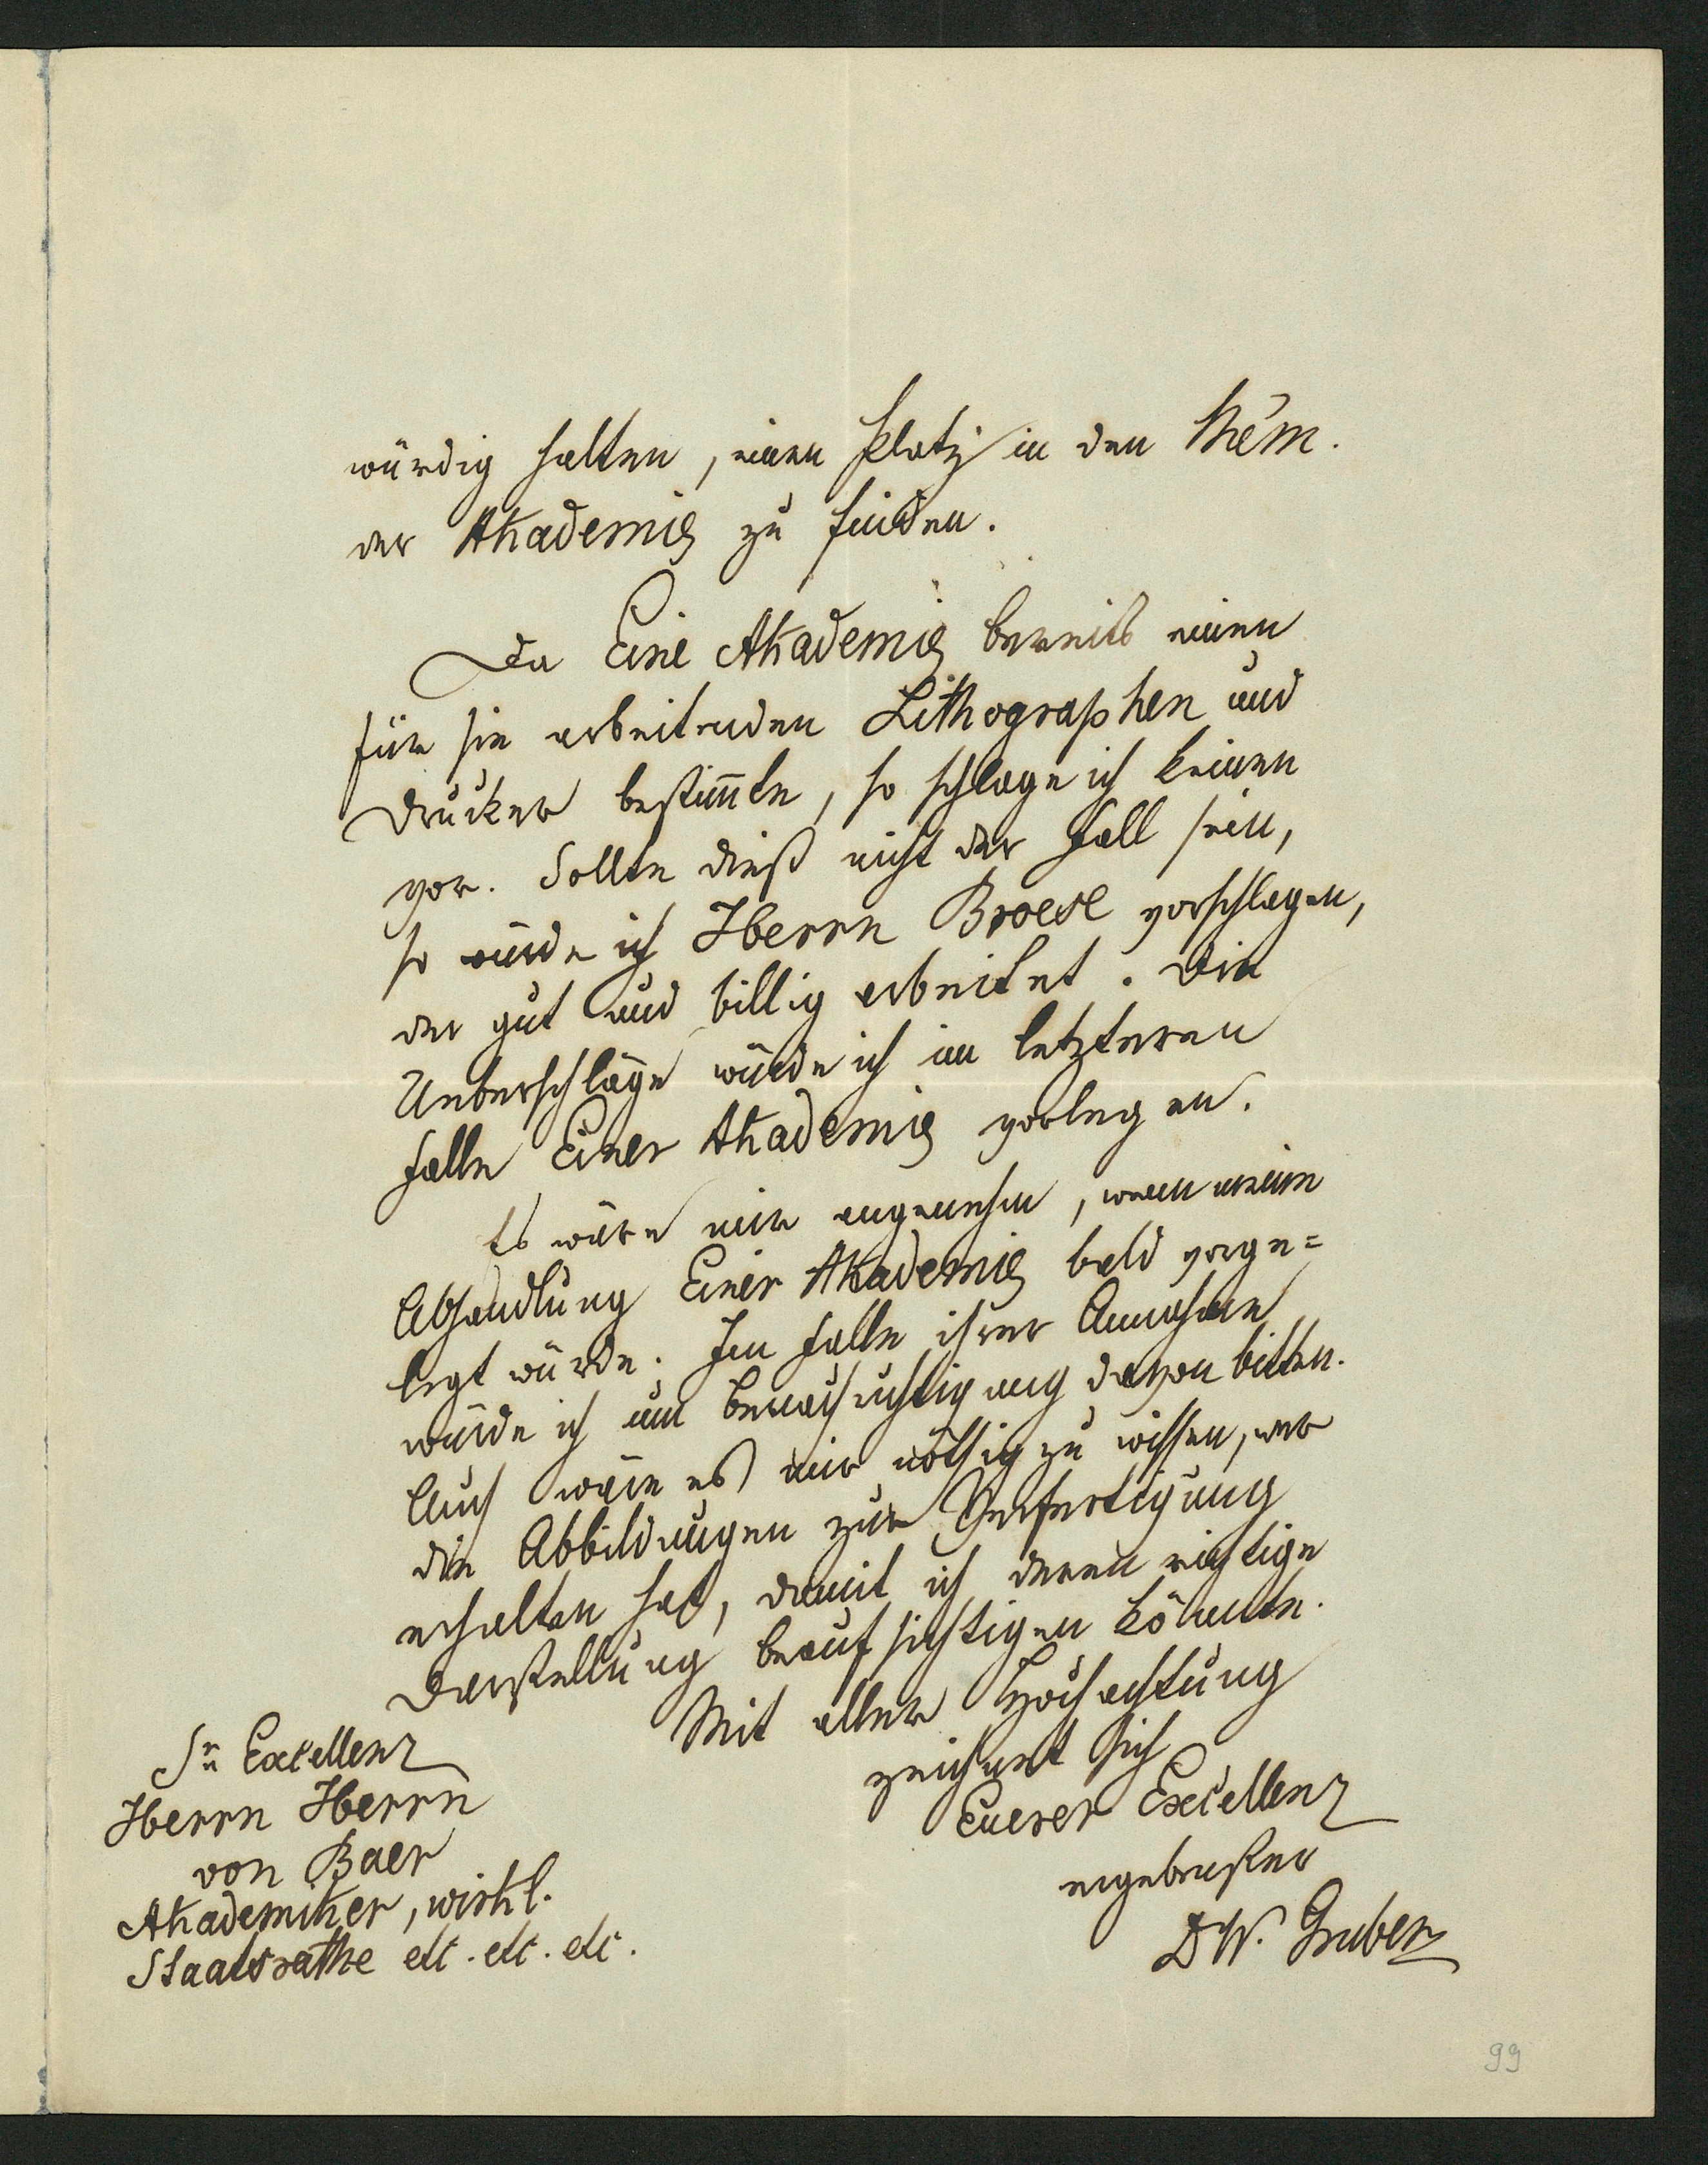 würdig halten, einen Platz in den Mém.
der Akademie zu finden.
Da Eine Akademie bereits einen
für sie arbeitenden Lithographen und
Drucker bestim̄te, so schlage ich keinen
vor. Sollte dieß nicht der Fall sein,
so würde ich Herrn Broese vorschlagen,
der gut und billig arbeitet. Die
Ueberschläge würde ich im letzteren
Falle Einer Akademie vorlegen.
Es wäre mir angenehm, wenn meine
Abhandlung Einer Akademie bald vorge=
legt würde. Im Falle ihrer Annahme
würde ich um Benachrichtigung davon bitten.
Auch wäre es mir nöthig zu wissen, wer
die Abbildungen zur Verfertigung
erhalten hat, damit ich deren richtige
Darstellung beaufsichtigen könnte.
Mit aller Hochachtung
zeichnet sich
Euerer Excellenz
ergebenster
D W. Gruber
Sr Excellenz
Herrn Herrn
von Baer
Akademiker, wirkl.
Staatsrathe etc. etc. etc.
99